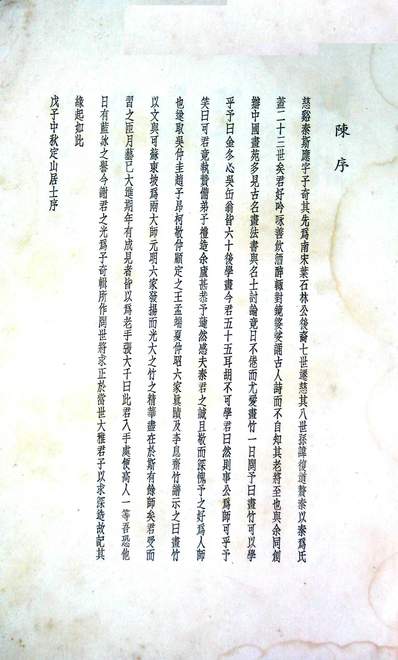 陳序
慈谿秦斯應字子奇其先為南宋葉石林公後裔七世遷慈其八世孫諱復道贅秦以秦為氏
蓋二十三世矣君好吟咏善飲酒醉輒對鏡婆娑誦古人詩而不自知其老將至也與余同創
辦中國畫苑多見古名畫法書與名士討論竟日不倦而尤愛畫竹一日問予曰畫竹可以學
乎予曰金冬心吳缶翁皆六十後學畫今君五十五耳胡不可學君曰然則事公為師可乎予
笑曰可君竟執贄備弟子禮造余廬甚恭予蘧然感夫秦君之誠且敬而深愧予之好為人師
也遂取吳仲圭趙子昂柯敬仲顧定之王孟端夏仲昭六家真蹟及李息齋竹譜示之曰畫竹
以文與可蘇東坡為兩大師元明六家發揚而光大之竹之精華盡在於斯有餘師矣君受而
習之匝月藝已大進期年有成見者皆以為老手張大千曰此君入手處便高人一等吾恐他
日有藍冰之譽今謝君之光為子奇輯所作問世將求正於當世大雅君子以求深造故記其
緣起如此
戊子中秋定山居士序